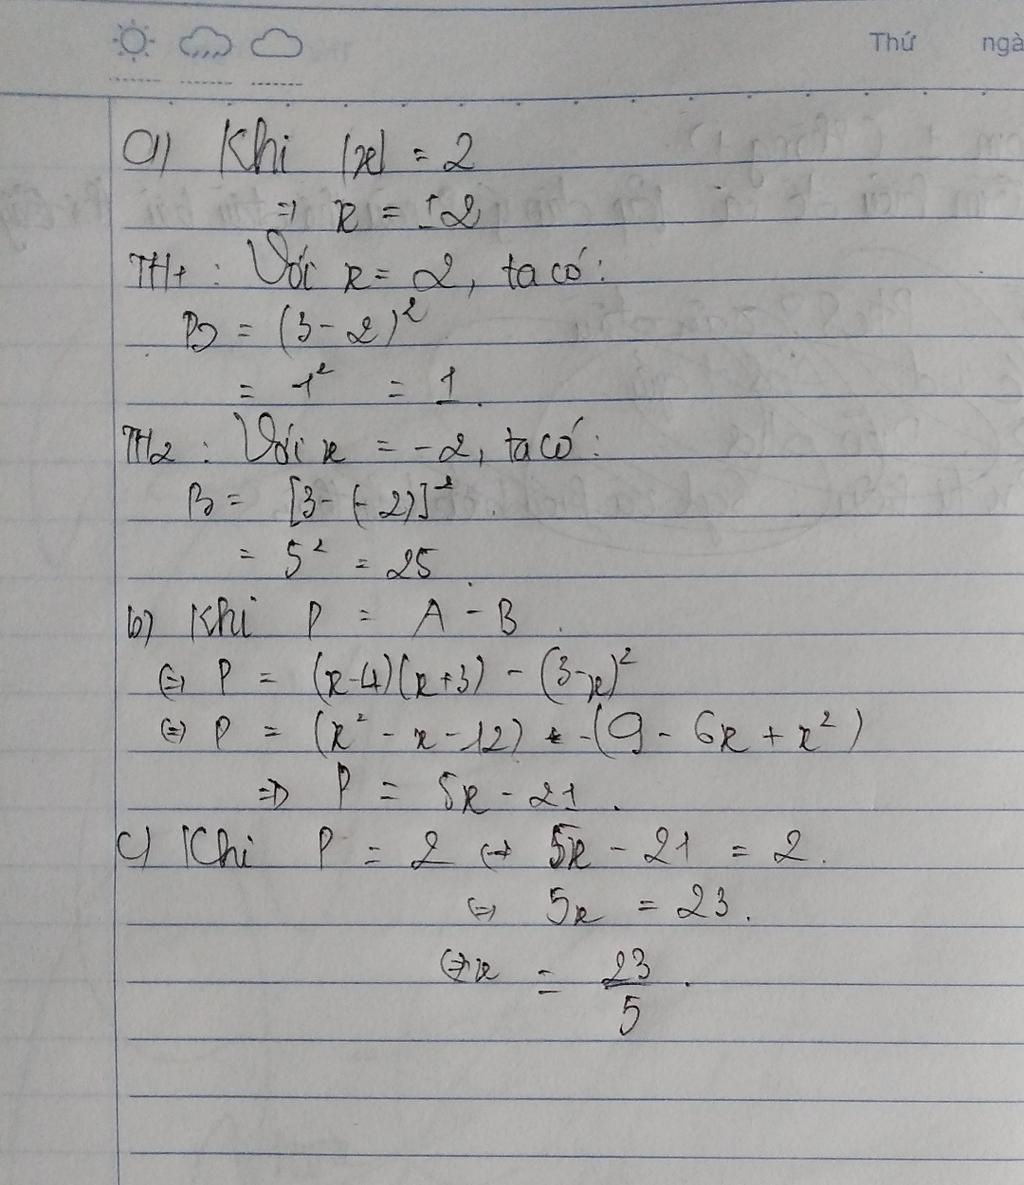 Thứ ngà
a) Khi |x| = 2
⇒ x = ±2
TH1 : Với x = 2, ta có :
B = (3 - 2)²
= 1² = 1.
TH2 : Với x = -2, ta có :
B = [3 - (-2)]² .
= 5² = 25 .
b) Khi P = A - B .
⇔ P = (x-4)(x+3) - (3-x)²
⇔ P = (x² - x - 12) - (9 - 6x + x²)
⇒ P = 5x - 21 .
c) Khi P = 2 ⇔ 5x - 21 = 2.
⇔ 5x = 23.
⇔ x = 23/5 .